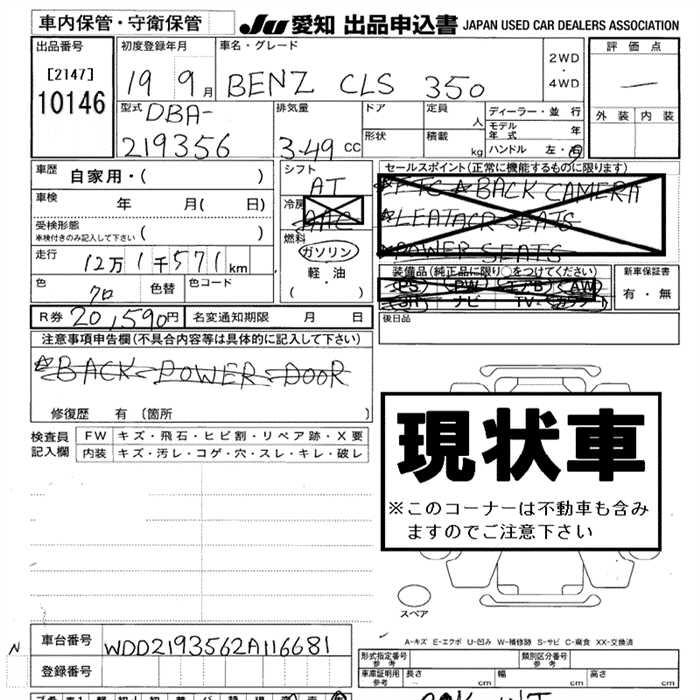 車内保管・守衛保管 JU 愛知 出品申込書 JAPAN USED CAR DEALERS ASSOCIATION
出品番号 初度登録年月 車名・グレード 2WD・4WD 評価点
[2147] 19 9月 BENZ CLS 350 —
10146 外装 内装
型式 排気量 ドア 定員 人 ディーラー・並行
DBA- モデル年式 年
219356 3.49 CC 形状 積載 kg ハンドル 左・右
車歴 自家用・( ) シフト AT セールスポイント(正常に機能するものに限ります)
車検 年 月( 日) 冷房 AAC ☆ETC ☆BACK CAMERA
受検形態 ☆LEATACR SEATS
車検付きのみ記入して下さい( ) 燃料 ☆POWER SEATS
走行 12万1千571km ガソリン 装備品(純正品に限り○をつけてください) 新車保証書
軽・油 PS PW エアB AW 有・無
色 クロ 色替 色コード ( ・ ) SR ナビ TV カワ
R券 20,590円 名変通知期限 月 日 後日品
注意事項申告欄(不具合内容等は具体的に記入して下さい)
☆BACK POWER DOOR
修復歴 有 〔箇所 〕
現状車
※このコーナーは不動車も含みますのでご注意下さい
検査員 FW キズ・飛石・ヒビ割・リペア跡・X要
記入欄 内装 キズ・汚レ・コゲ・穴・スレ・キレ・破レ
スペア
A-キズ E-エクボ U-凹み W-補修跡 S-サビ C-腐食 XX-交換済
N 車台番号 WDD2193562A116681
登録番号
形式指定番号 参考 類別区分番号 参考
車庫証明用 参考 長さ cm 幅 cm 高さ cm